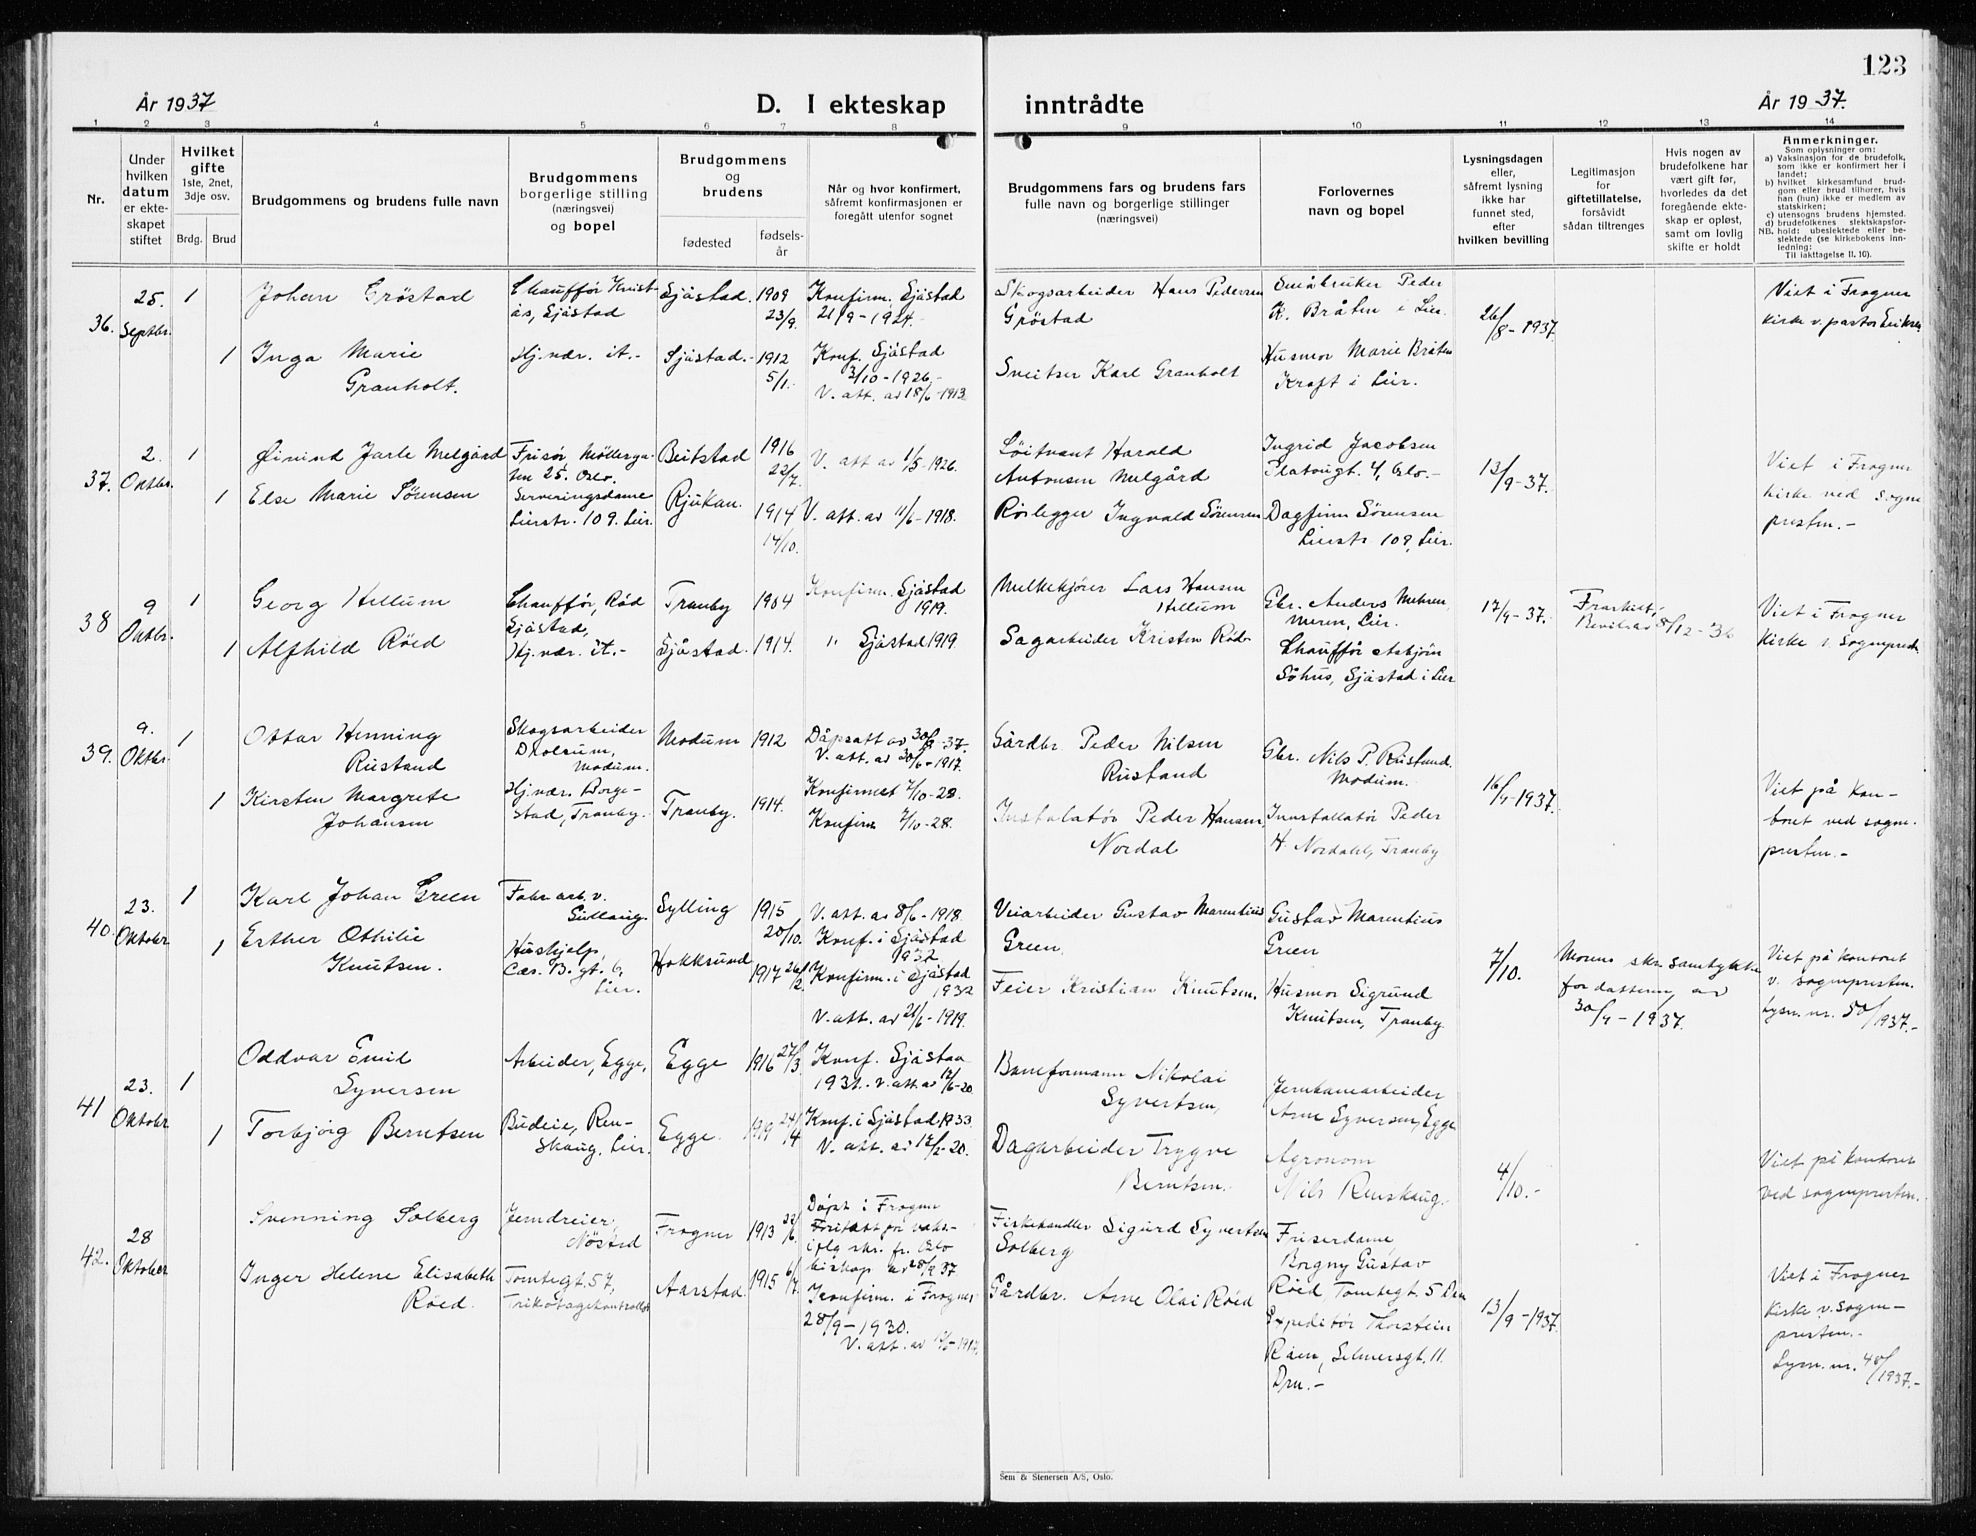 123
År 1937
D. I ekteskap inntrådte
År 1937.
1 2 3 4 5 6 7 8 9 10 11 12 13 14
Nr.
Under
hvilken
datum
er ekte-
skapet
stiftet
Hvilket
gifte
1ste, 2net,
3dje osv.
Brdg. Brud
Brudgommens og brudens fulle navn
Brudgommens
borgerlige stilling
(næringsvei)
og bopel
Brudgommens
og
brudens
fødested
fødsels-
år
Når og hvor konfirmert,
såfremt konfirmasjonen er
foregått utenfor sognet
Brudgommens fars og brudens fars
fulle navn og borgerlige stillinger
(næringsvei)
Forlovernes
navn og bopel
Lysningsdagen
eller,
såfremt lysning
ikke har
funnet sted,
efter
hvilken bevilling
Legitimasjon
for
giftetillatelse,
forsåvidt
sådan tiltrenges
Hvis nogen av
brudefolkene har
vært gift før,
hvorledes da det
foregående ekte-
skap er opløst,
samt om lovlig
skifte er holdt
Anmerkninger.
Som oplysninger om:
a) Vaksinasjon for de brudefolk,
som ikke er konfirmert her i
landet;
b) hvilket kirkesamfund brud-
gom eller brud tilhører, hvis
han (hun) ikke er medlem av
statskirken;
c) utensogns brudens hjemsted.
d) brudefolkenes slektskapsfor-
NB. hold: ubeslektede eller be-
slektede (se kirkebokens inn-
ledning:
Til iakttagelse II. 10).
36.
25.
Septbr.
1
Johan Gröstad
Chauffför Kvist-
ås, Sjåstad
Sjåstad.
1909
23/9.
Konfirm. Sjåstad
21/9 - 1924.
Skogsarbeider Hans Pedersen
Gröstad
Småbruker Peder
K. Bråten i Lier.
26/8 - 1937.
Viet i Frogner
kirke v. pastor Eriksen
1
Inga Marie
Granholt.
Hj.vær. it.-
Sjåstad.-
1912
5/1.
Konf. Sjåstad
3/10 - 1926.-
V. att. av 18/6 - 1913
Sveitser Karl Granholt
Husmor Marie Bråten
Kraft i Lier.
37.
2.
Oktbr.
1
Øivind Jarle Melgård
Frisör Möllerga-
ten 25. Oslo.
Beitstad
1916
22/7.
V. att av 1/5 - 1926.
Löitnant Harald
Antonsen Melgård
Ingrid Jacobsen
Platougt. 4, Oslo.-
13/9 - 37.
Viet i Frogner
kirke ved sogne
presten.-
1
Else Marie Sörensen
Serveringsdame
Lierstr. 109. Lier.
Rjukan.
1914
14/10.
V. att. av 11/6 - 1918.
Rörlegger Ingvald Sörensen
Dagfinn Sörensen
Lierstr 109, Lier.
38
9
Oktbr.
1
Georg Hellum
Chauffför, Röd
Sjåstad,
Tranby
1904
Konfirm. Sjåstad
1919.
Melkekjörer Lars Hansen
Hellum
Gbr. Anders Mehren,
Meren, Lier.
17/9 - 37.
Fraskilt,
Bevilling 8/12 - 36
Viet i Frogner
Kirke v. Sognprest.
1
Alfhild Röed
Hj.vær. it.-
Sjåstad.
1914.
" Sjåstad 1919.
Sagarbeider Kristen Röd
Chauffför Asbjörn
Söhus, Sjåstad i Lier
39.
9.
Oktbr.
1
Ottar Henning
Rustand
Skogsarbeider
Drolsum,
Modum.
Modum
1912
Dåpsatt av 30/8 - 37.
V. att. av 30/6 - 1917.
Gårdbr. Peder Nilsen
Rustand
Gbr. Nils P. Rustand.
Modum.
16/9 - 1937.
Viet på kon-
toret ved sogne-
presten.-
1
Kirsten Margrete
Johansen
Hj.vær. Borge-
stad, Tranby.
Tranby.
1914.
Konfirmert 7/10 - 28.
Konfirm 7/10 - 28.
Installatör Peder Hansen
Nordal
Innstallatör Peder
H. Nordahl, Tranby
40.
23.
Oktober
1
Karl Johan Green
Fabr.arb. v.
Gullaug.
Sylling
1915
20/10.
V. att. av 8/6 - 1918.
Konf. i Sjåstad
1932
Veiarbeider Gustav Marentius
Green.
Gustav Marentius
Green
7/10.
Morens skr. samtykke
for datteren av
30/9 - 1937.
Viet på kontoret
v. sognepresten.
Lysn. nr. 50/1937.-
1
Esther Othilie
Knutsen.
Hushjelp,
Cæs. B. gt. 6,
Lier.
Hokksund
1917 26/2.
Konfirm. i Sjåstad
1932
V. att. av 21/6 - 1919.
Feier Kristian Knutsen.
Husmor Sigrund
Knutsen, Tranby.
41
23.
Oktober
1
Oddvar Emil
Syversen
Arbeider, Egge,
Egge
1916 27/3
Konf. Sjåstad
1931. v. att av 12/6 - 20.
Baneformann Nikolai
Syvertsen,
Jernbanearbeider
Arne Syversen, Egge
4/10.-
Viet på kontoret
ved sognepresten.
1
Torbjörg Berntsen
Budeie, Ren-
skaug, Lier.
Egge.
1919 24/4
Konf. i Sjåstad 1933.
V. att. av 12/2 - 20.
Dagarbeider Trygve
Berntsen.
Agronom
Nils Renskaug.
42.
28
Oktober
Svenning Solberg
Jerndreier,
Nösted
Frogner
1913 22/6.
Döpt i Frogner
Fritatt for vaks-
iflg skr. fr. Oslo
biskop av 28/9 37
Fiskehandler Sigurd Syvertsen
Solberg
Friserdame
Borgny Gustav
Röed Tomtegt. 5 Drm
13/9 - 1937.
Viet i Frogner
Kirke v. sogne-
presten.-
Lysn. nr. 48/1937.-
Inger Helene Elisabeth
Röed.
Tomtegt. 57,
Trikotasjekontrollör
Aarstad.
1915 6/7.
Konfirm. i Frogner
28/9 - 1930.
V. att. av 1/6 - 1917.
Gårdbr. Arne Olai Röed
Expeditör Thorstein
Röen, Selmersgt. 11.
Drm.-
Sem & Stenersen A/S, Oslo.